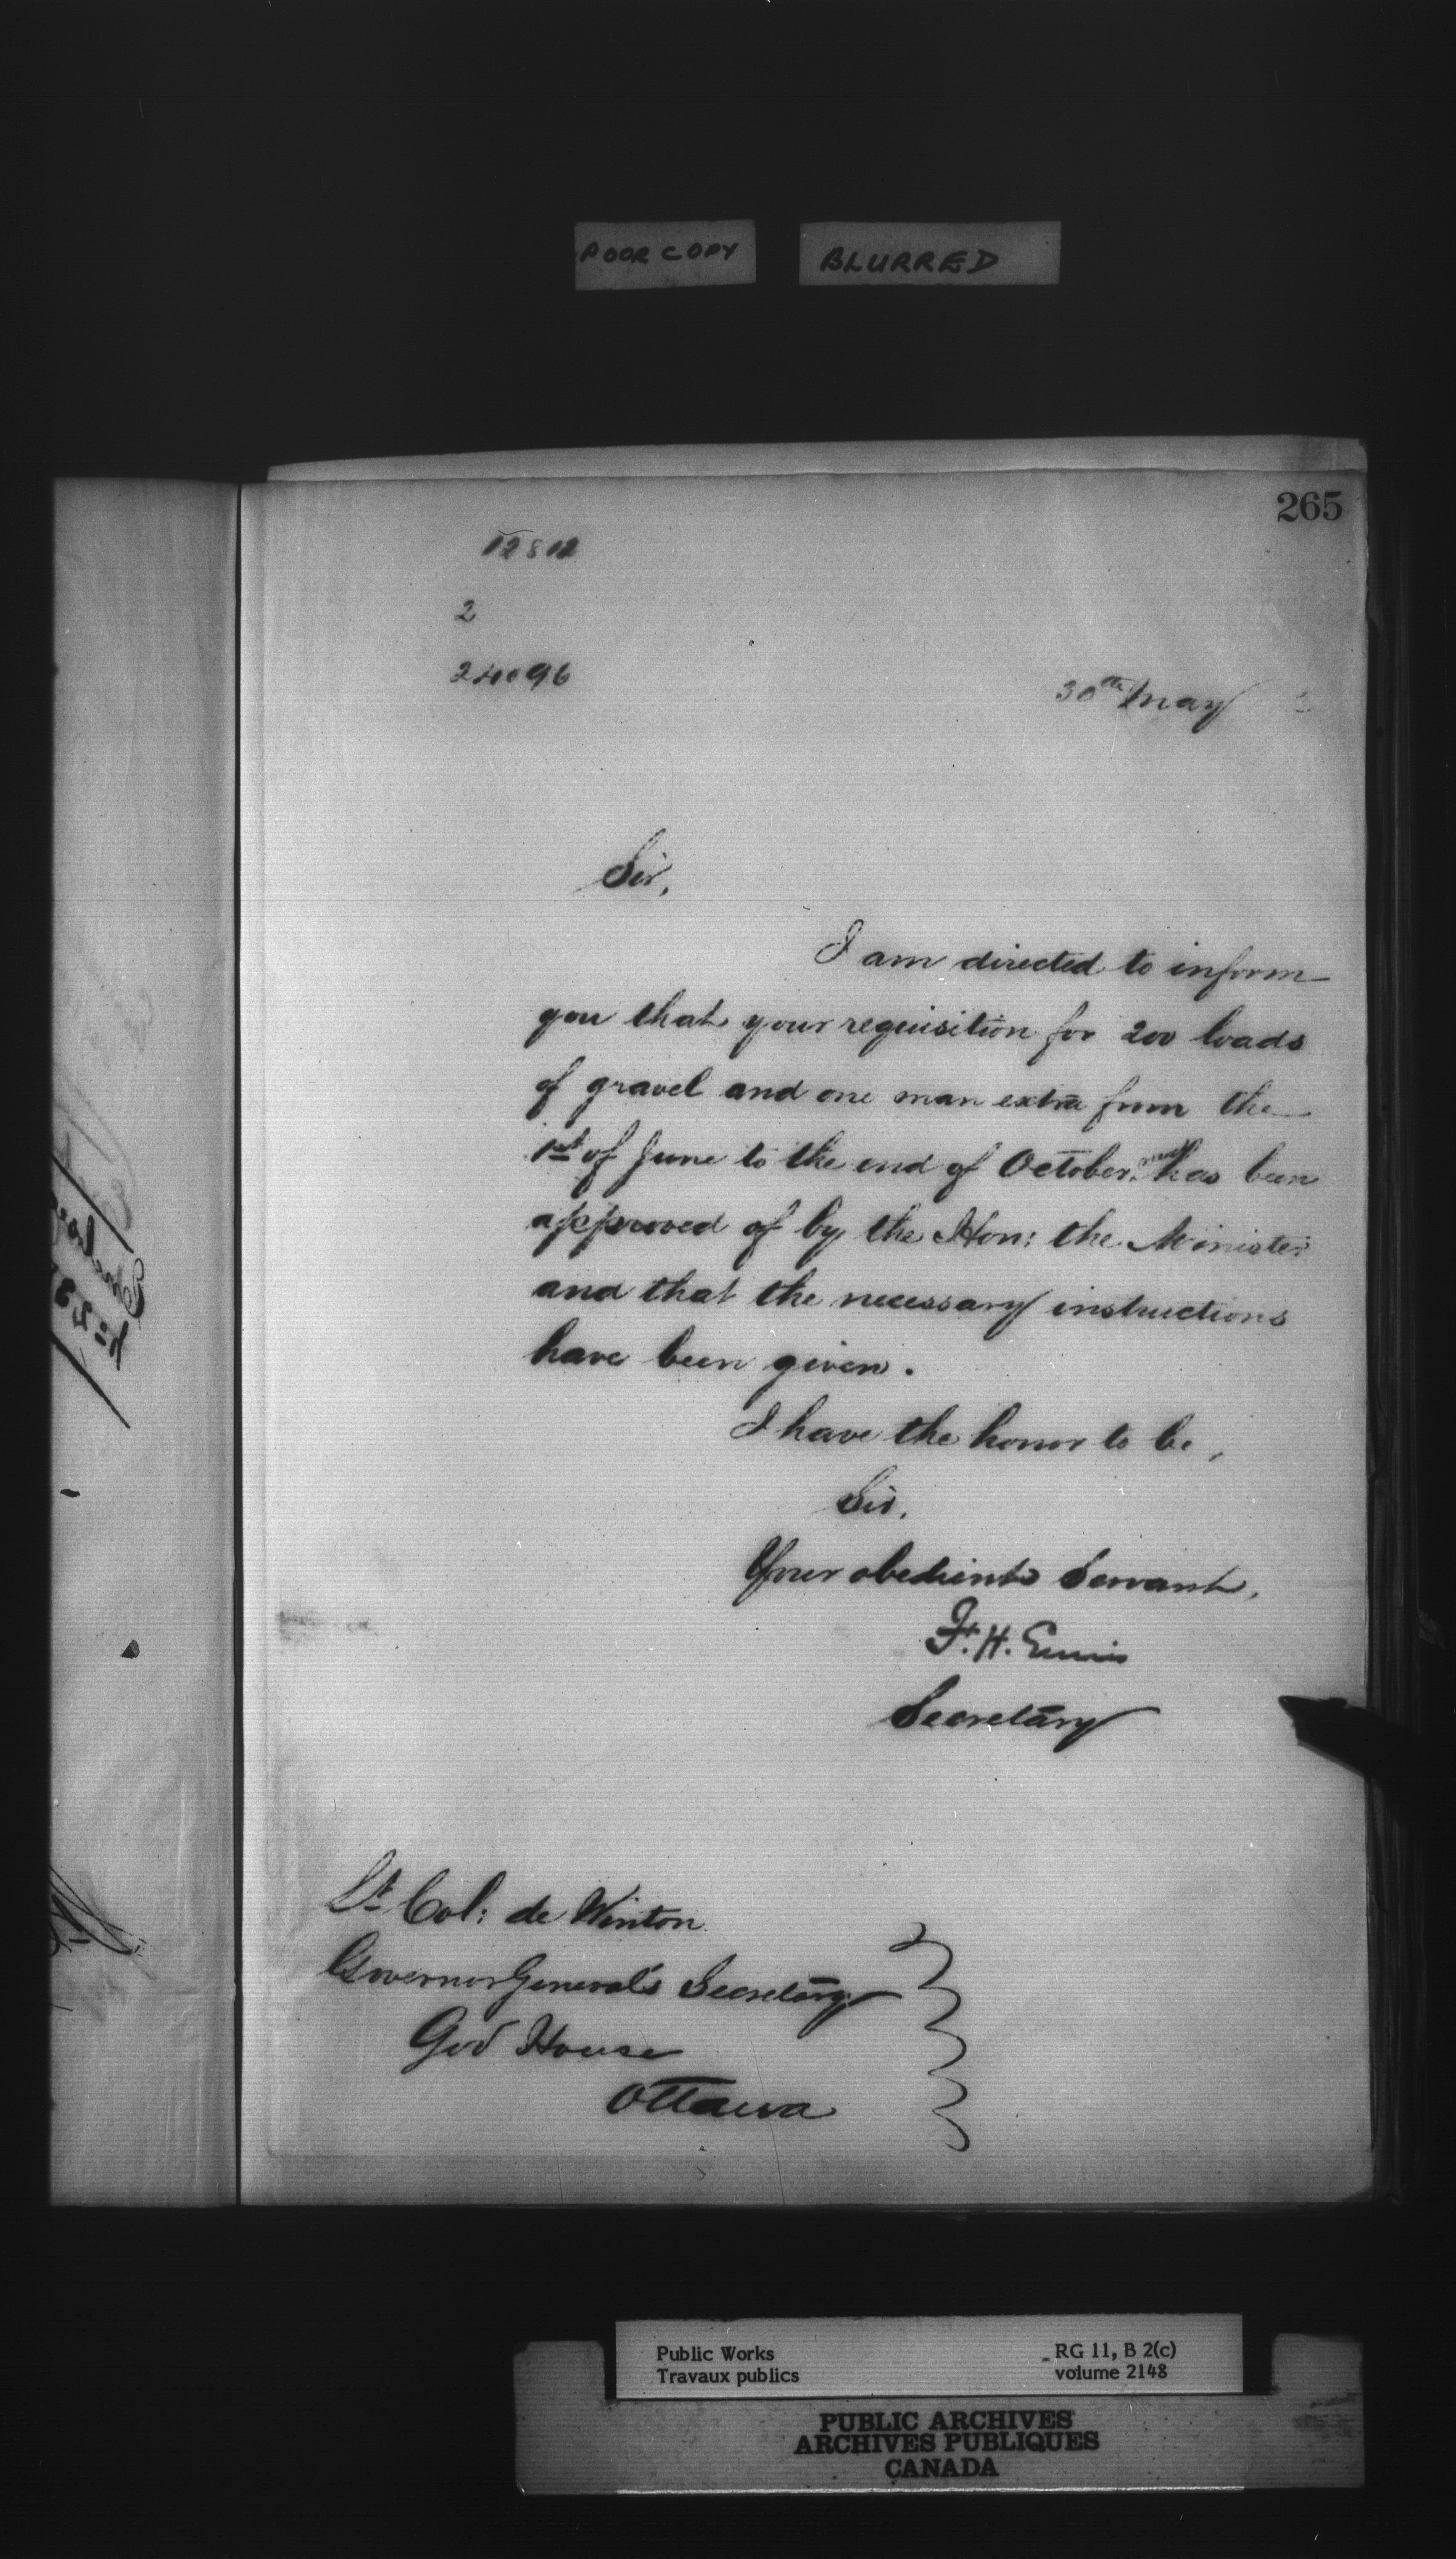 POOR COPY BLURRED
265
12812
2
24096
30th May 2
Sir,
I am directed to inform
you that your requisition for 200 loads
of gravel and one man extra from the
1st of June to the end of October next has been
approved of by the Hon: the Minister
and that the necessary instructions
have been given.
I have the honor to be,
Sir,
Your obedient Servant,
F. H. Ennis
Secretary
Lt Col: de Winton
Governor General's Secretary
Gov House
Ottawa
Public Works
Travaux publics
RG 11, B 2(c)
volume 2148
PUBLIC ARCHIVES
ARCHIVES PUBLIQUES
CANADA